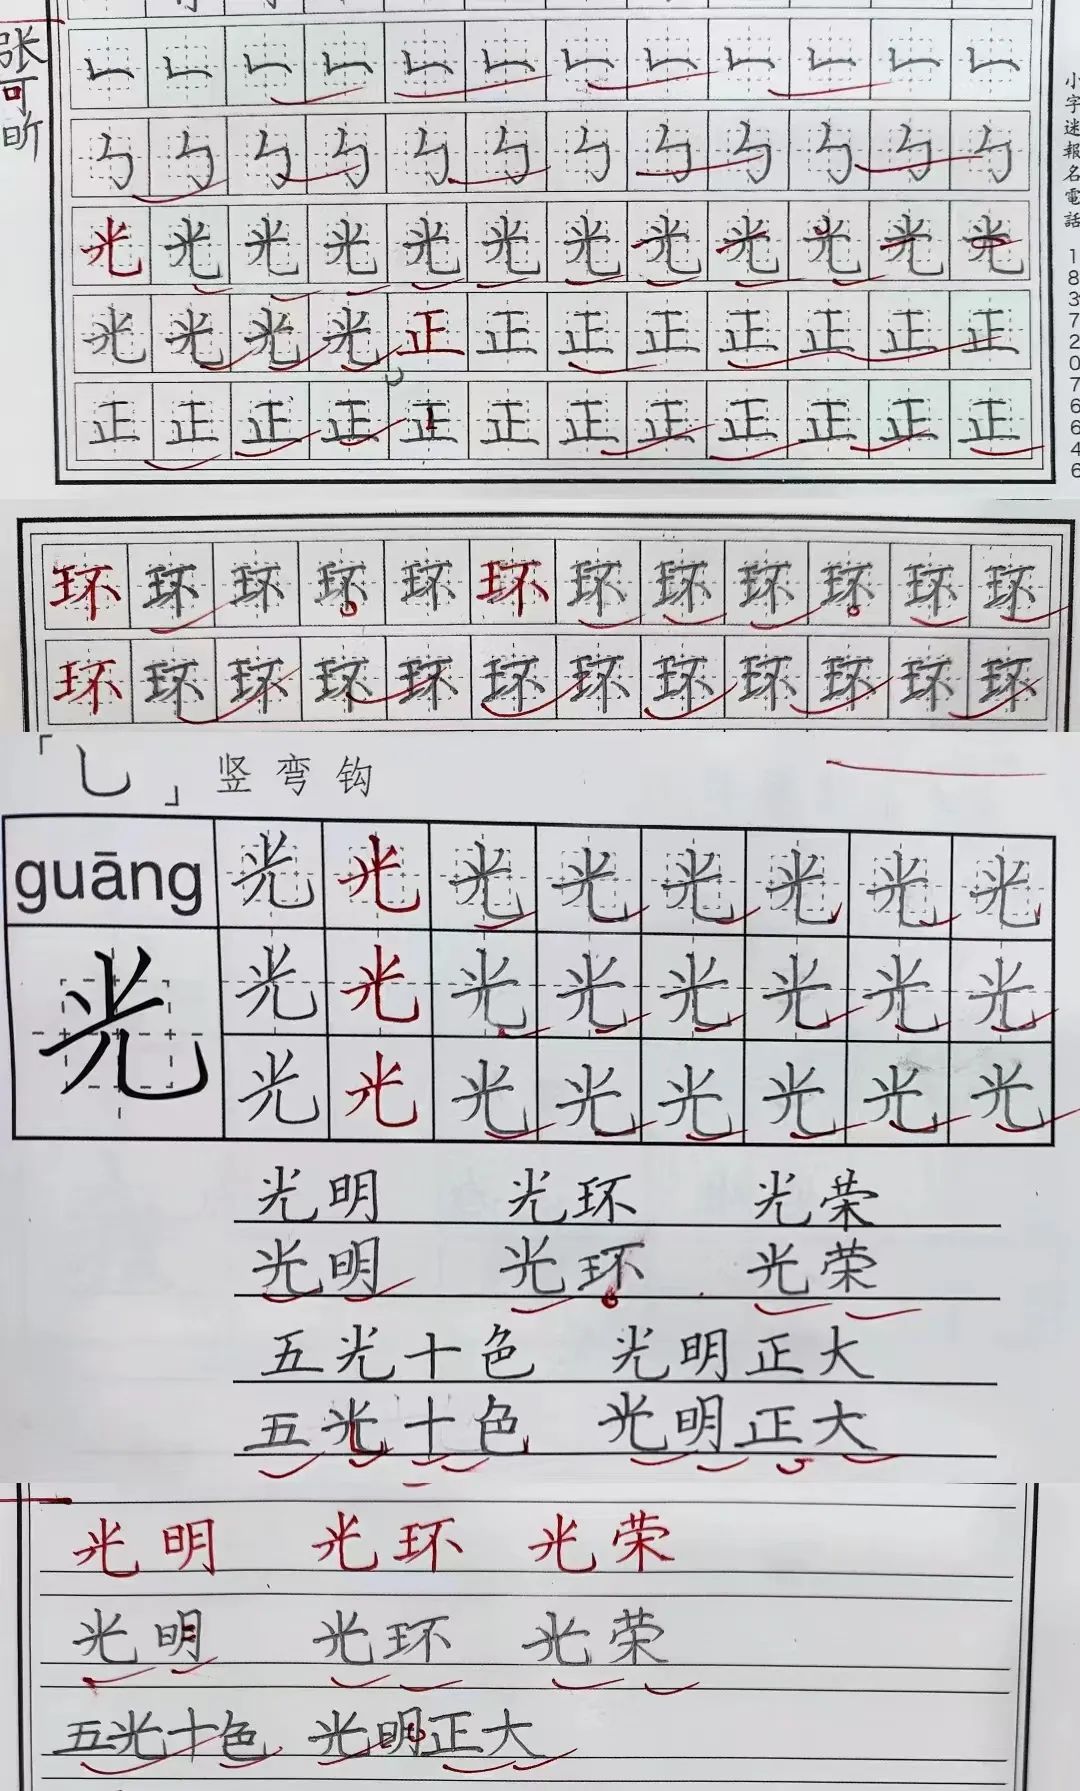 张可昕
小字迷報名電話 18372076646
光光光光光光光光光光光光
光光光光正正正正正正正正
正正正正正正正正正正正正
环环环环环环环环环环环环
环环环环环环环环环环环环
「乚」竖弯钩
guāng 光光光光光光光光
光 光光光光光光光光
光光光光光光光光
光明 光环 光荣
光明 光环 光荣
五光十色 光明正大
五光十色 光明正大
光明 光环 光荣
光明 光环 光荣
五光十色 光明正大